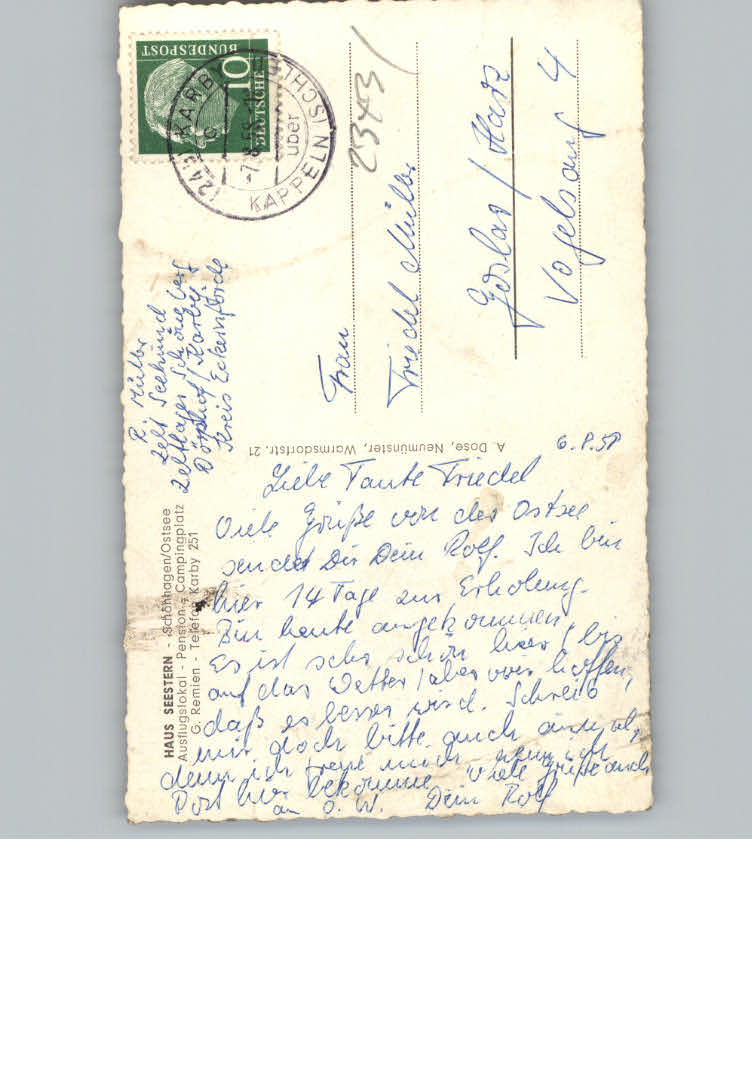 BUNDESPOST
10
DEUTSCHE
(24b) KARBY
über
KAPPELN (SCHLEI)
2343
Frau
Friedel Müller
Goslar / Harz
Vogelsang 4
R. Müller
Zelt Seehund
Zeltlager Schönberg
Dörphof / Karby
Kreis Eckernförde
A. Dose, Neumünster, Warmsdorfstr. 21
HAUS SEESTERN - Schönhagen/Ostsee
Ausflugslokal - Pension - Campingplatz
G. Remien - Telefon Karby 251
6.8.58
Liebe Tante Friedel
Viele Grüße von der Ostsee
sendet Dir Dein Rolf. Ich bin
hier 14 Tage zur Erholung.
Bin heute angekommen,
Es ist sehr schön hier, bis
auf das Wetter, aber wir hoffen,
daß es besser wird. Schreib
mir doch bitte auch einmal,
denn ich freue mich wenn ich
Post hier bekomme. Viele Grüße auch
an O. W. Dein Rolf